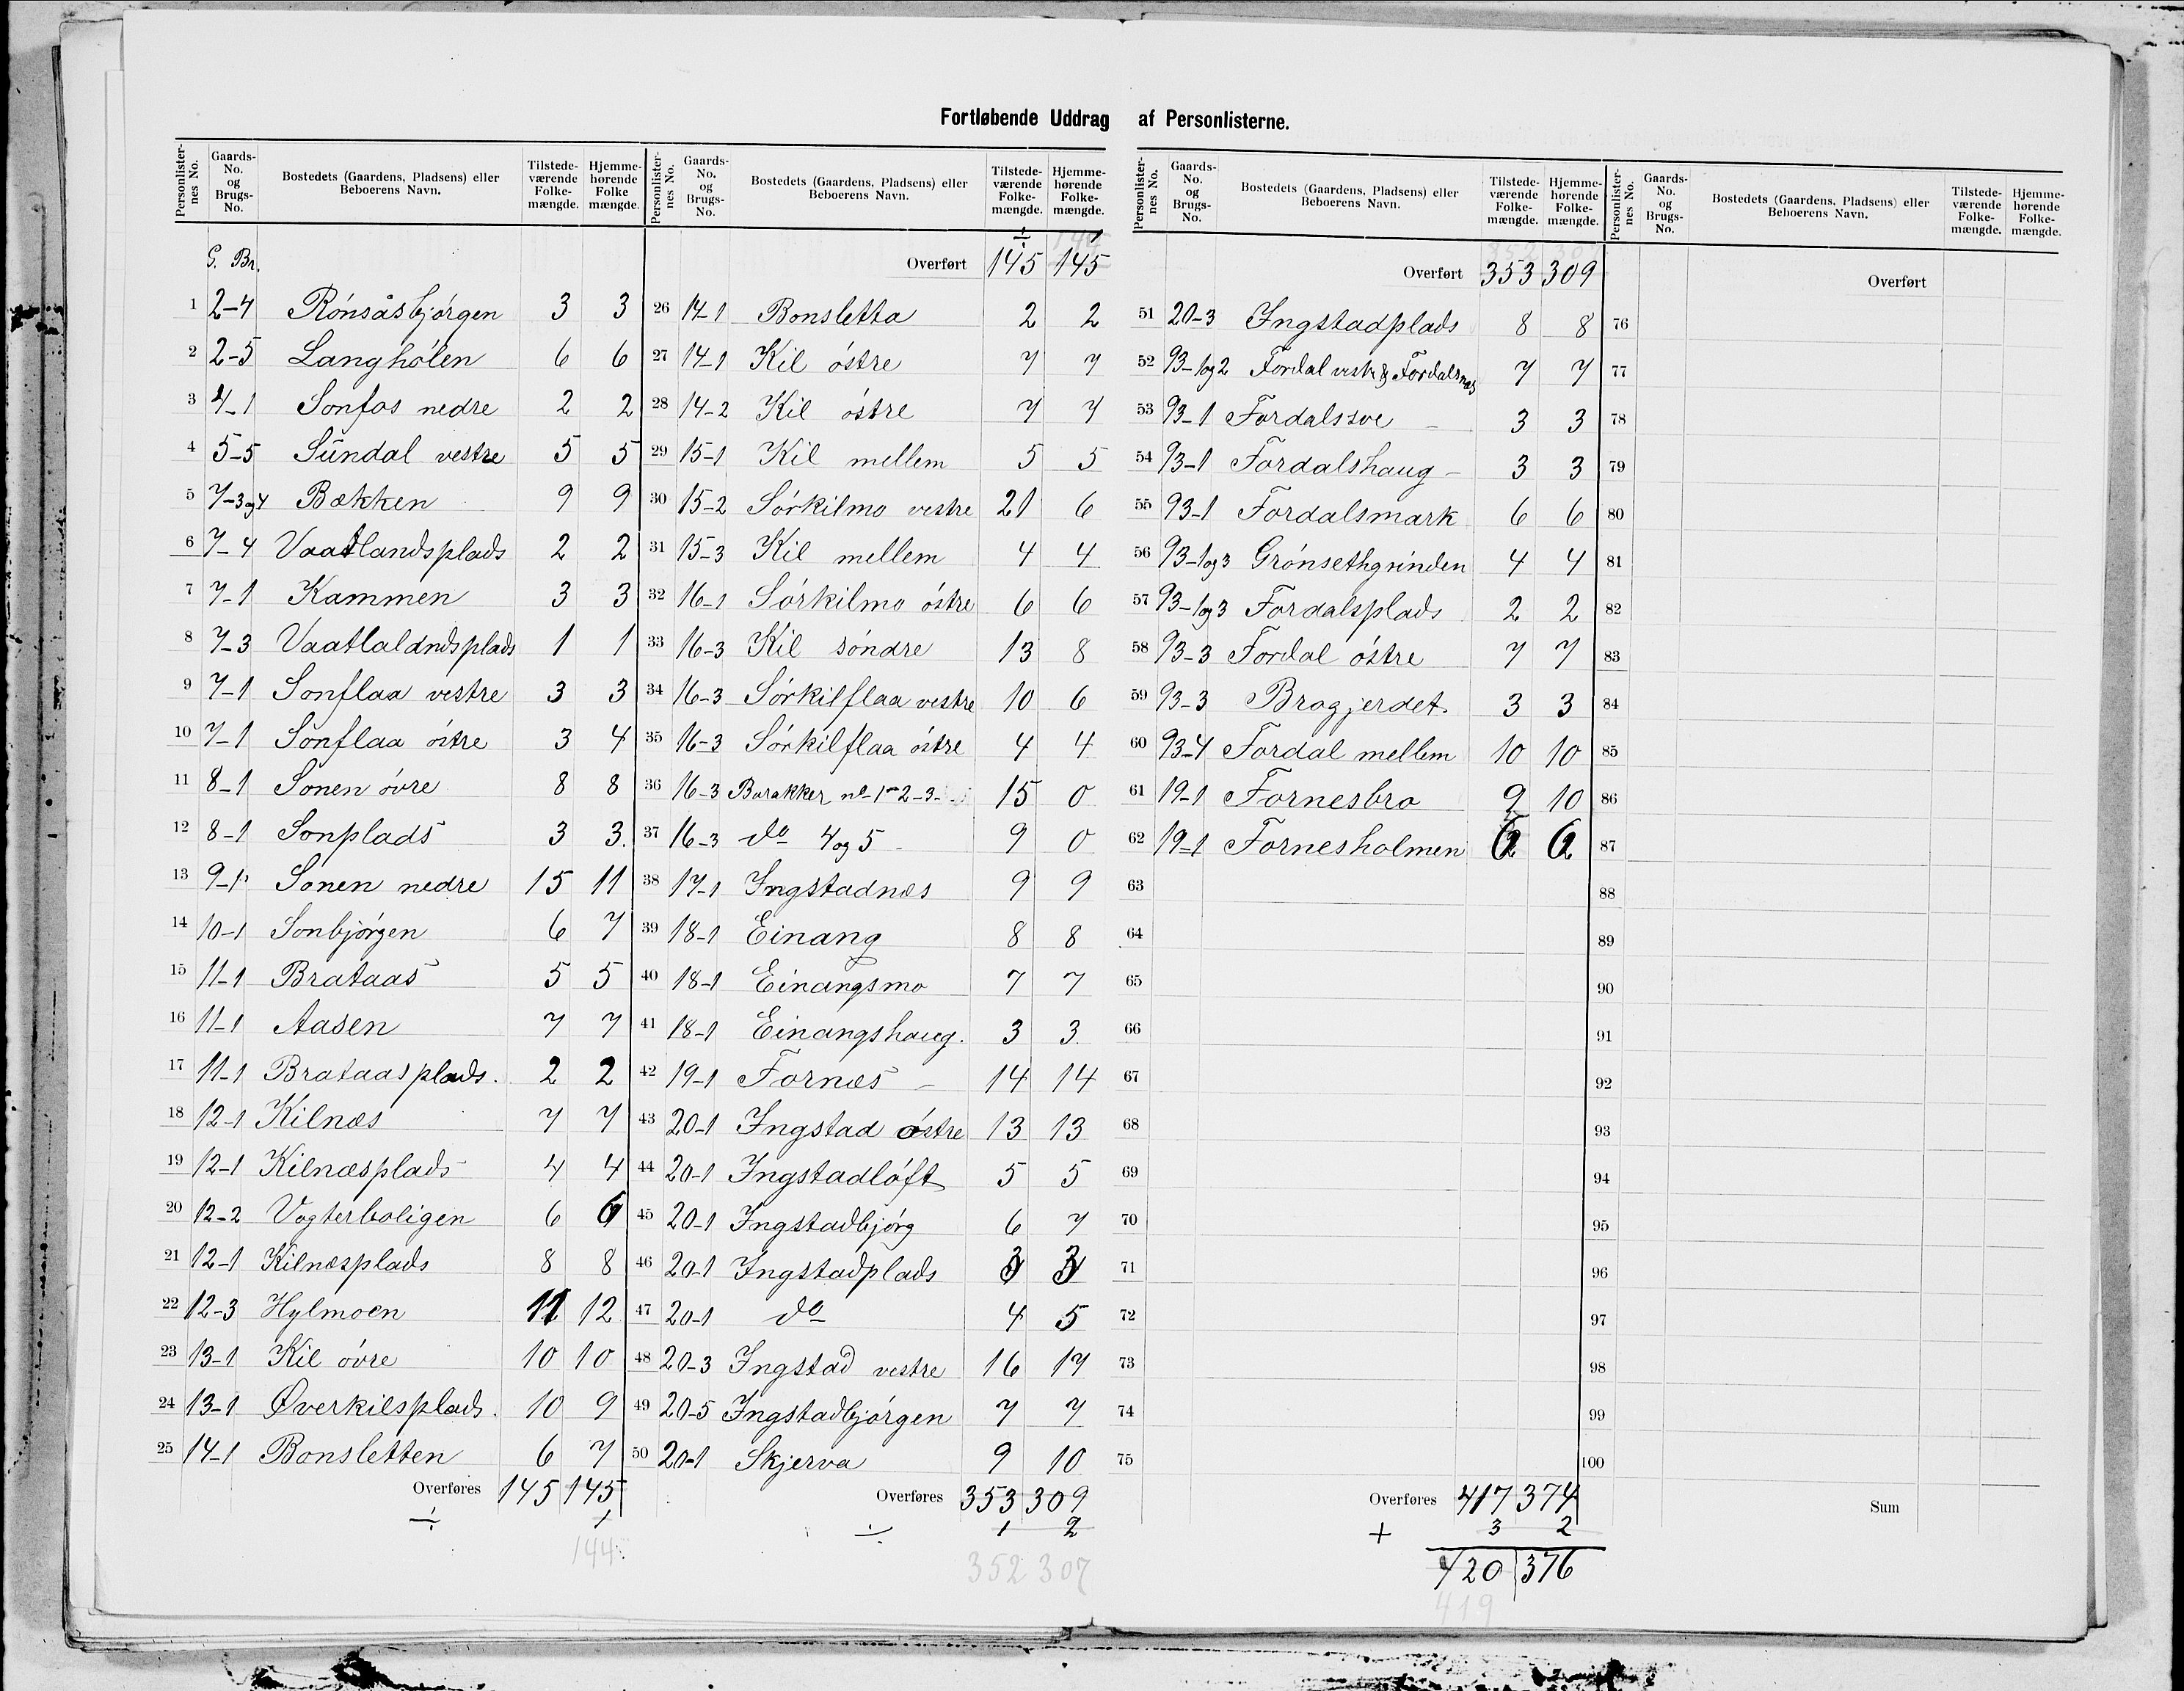 Fortløbende Uddrag af Personlisterne.
Personlisternes No. Gaards-No. og Brugs-No. Bostedets (Gaardens, Pladsens) eller Beboerens Navn. Tilstedeværende Folkemængde. Hjemmehørende Folkemængde.
G. Br.
1 2-4 Rönsåsbjörgen 3 3
2 2-5 Langhölen 6 6
3 4-1 Sonfos nedre 2 2
4 5-5 Sundal vestre 5 5
5 7-3og4 Bækken 9 9
6 7-4 Vaatlandsplads 2 2
7 7-1 Kammen 3 3
8 7-3 Vaatlaldndsplads 1 1
9 7-1 Sonflaa vestre 3 3
10 7-1 Sonflaa östre 3 4
11 8-1 Sonen övre 8 8
12 8-1 Sonplads 3 3.
13 9-1 Sonen nedre 15 11
14 10-1 Sonbjörgen 6 7
15 11-1 Brataas 5 5
16 11-1 Aasen 7 7
17 11-1 Brataasplads. 2 2
18 12-1 Kilnæs 7 7
19 12-1 Kilnæsplads 4 4
20 12-2 Vogterboligen 6 6
21 12-1 Kilnæsplads 8 8
22 12-3 Hylmoen 11 12
23 13-1 Kil övre 10 10
24 13-1 Øverkilsplads. 10 9
25 14-1 Bonsletten 6 7
Overføres 145 145
÷ 1
144
Personlisternes No. Gaards-No. og Brugs-No. Bostedets (Gaardens, Pladsens) eller Beboerens Navn. Tilstedeværende Folkemængde. Hjemmehørende Folkemængde.
÷ 144
Overført 145 145
26 14-1 Bonsletta 2 2
27 14-1 Kil östre 7 7
28 14-2 Kil östre 7 7
29 15-1 Kil mellem 5 5
30 15-2 Sörkilmo vestre 21 6
31 15-3 Kil mellem 4 4
32 16-1 Sörkilmo östre 6 6
33 16-3 Kil söndre 13 8
34 16-3 Sörkilflaa vestre 10 6
35 16-3 Sörkilflaa östre 4 4
36 16-3 Barakker no 1-2-3- 15 0
37 16-3 do 4 og 5 - 9 0
38 17-1 Ingstadnæs 9 9
39 18-1 Einang 8 8
40 18-1 Einangsmo 7 7
41 18-1 Einangshaug. 3 3
42 19-1 Fornæs - 14 14
43 20-1 Ingstad östre 13 13
44 20-1 Ingstadlöft 5 5
45 20-1 Ingstadbjörg 6 7
46 20-1 Ingstadplads 3 3
47 20-1 do 4 5
48 20-3 Ingstad vestre 16 17
49 20-5 Ingstadbjörgen 7 7
50 20-1 Skjerva 9 10
Overføres 353 309
÷ 1 2
352 307
Personlisternes No. Gaards-No. og Brugs-No. Bostedets (Gaardens, Pladsens) eller Beboerens Navn. Tilstedeværende Folkemængde. Hjemmehørende Folkemængde.
Overført 353 309
51 20-3 Ingstadplads 8 8
52 93-1og2 Fordal vestre & Fordalsnæs 7 7
53 93-1 Fordalssve - 3 3
54 93-1 Fordalshaug - 3 3
55 93-1 Fordalsmark 6 6
56 93-1og3 Grönsethgrinden 4 4
57 93-1og3 Fordalsplads 2 2
58 93-3 Fordal östre 7 7
59 93-3 Brogjerdet. 3 3
60 93-4 Fordal mellem 10 10
61 19-1 Fornesbro 9 10
62 19-1 Fornesholmen
63
64
65
66
67
68
69
70
71
72
73
74
75
Overføres 417 374
+ 3 2
420 376
419
Personlisternes No. Gaards-No. og Brugs-No. Bostedets (Gaardens, Pladsens) eller Beboerens Navn. Tilstedeværende Folkemængde. Hjemmehørende Folkemængde.
Overført
76
77
78
79
80
81
82
83
84
85
86
87
88
89
90
91
92
93
94
95
96
97
98
99
100
Sum